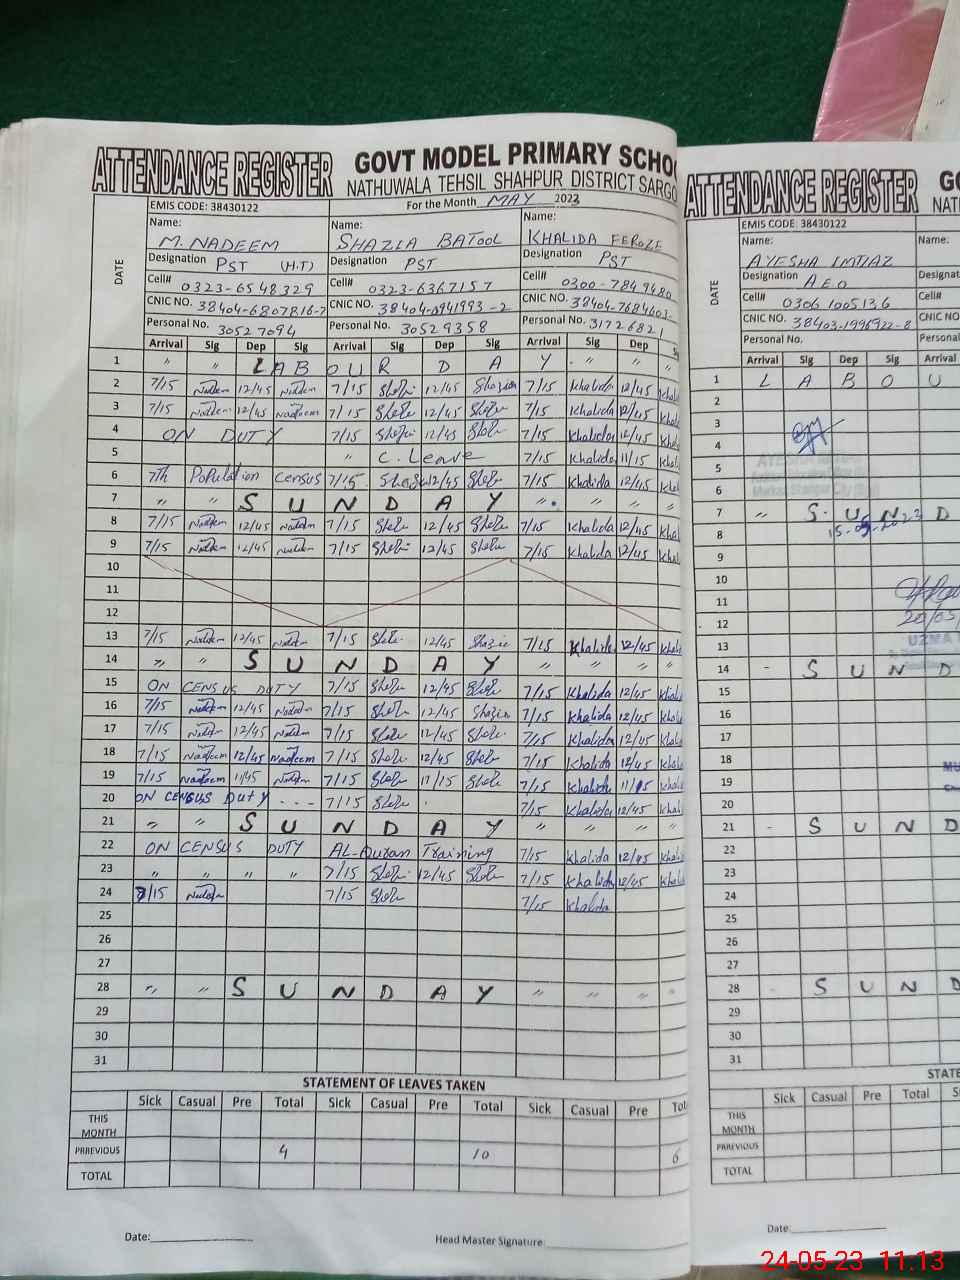 ATTENDANCE REGISTER GOVT MODEL PRIMARY SCHO
NATHUWALA TEHSIL SHAHPUR DISTRICT SARGO
EMIS CODE: 38430122 For the Month MAY 2023
DATE
Name: M. NADEEM Name: SHAZIA BATOOL Name: KHALIDA FEROZE
Designation PST (H.T) Designation PST Designation PST
Cell# 0323-6548329 Cell# 0323-6367157 Cell# 0300-7849480
CNIC NO. 38404-6807816-7 CNIC NO. 38404-0941993-2 CNIC NO. 38404-7684603-
Personal No. 30527094 Personal No. 30529358 Personal No. 31726821
Arrival Sig Dep Sig Arrival Sig Dep Sig Arrival Sig Dep
1 " " LABOUR DAY " "
2 7/15 Nadeem 12/45 Nadeem 7/15 12/45 Shazia 7/15 Khalida 12/45 Khal
3 7/15 Nadeem 12/45 Nadeem 7/15 12/45 7/15 Khalida 12/45 Khal
4 ON DUTY 7/15 12/45 7/15 Khalida 12/45 Khal
5 " C. Leave 7/15 Khalida 11/15 Khal
6 7th Population Census 7/15 12/45 7/15 Khalida 12/45 Khal
7 " " SUNDAY "
8 7/15 Nadeem 12/45 Nadeem 7/15 12/45 7/15 Khalida 12/45 Khal
9 7/15 Nadeem 12/45 Nadeem 7/15 12/45 7/15 Khalida 12/45 Khal
10
11
12
13 7/15 Nadeem 12/45 Nadeem 7/15 12/45 Shazia 7/15 Khalida 12/45 Khal
14 " " SUNDAY " " " "
15 ON CENSUS DUTY 7/15 12/45 7/15 Khalida 12/45 Khal
16 7/15 Nadeem 12/45 Nadeem 7/15 12/45 Shazia 7/15 Khalida 12/45 Khal
17 7/15 Nadeem 12/45 Nadeem 7/15 12/45 7/15 Khalida 12/45 Khal
18 7/15 Nadeem 12/45 Nadeem 7/15 12/45 7/15 Khalida 12/45 Khal
19 7/15 Nadeem 11/45 Nadeem 7/15 11/15 7/15 Khalida 11/15 Khal
20 ON CENSUS DUTY 7/15 7/15 Khalida 12/45 Khal
21 " " SUNDAY " " " "
22 ON CENSUS DUTY AL-Quran Training 7/15 Khalida 12/45 Khal
23 " " " " 7/15 12/45 7/15 Khalida 12/45 Khal
24 7/15 Nadeem 7/15 7/15 Khalida
25
26
27
28 " " SUNDAY " " " "
29
30
31
STATEMENT OF LEAVES TAKEN
Sick Casual Pre Total Sick Casual Pre Total Sick Casual Pre Tot
THIS MONTH
PRREVIOUS 4 10 6
TOTAL
Date: Head Master Signature:
ATTENDANCE REGISTER GO
NATH
EMIS CODE: 38430122
DATE
Name: AYESHA IMTIAZ Name:
Designation AEO Designat
Cell# 0306 1005136 Cell#
CNIC NO. 38403-1996922-8 CNIC NO.
Personal No. Personal
Arrival Sig Dep Sig Arrival
1 LABOU
2
3
4
5
6
7 " SUND
8 15-05-2023
9
10
11
12 20/05/
13 UZMA
14 - SUND
15
16
17
18
19
20
21 - SUND
22
23
24
25
26
27
28 - SUND
29
30
31
STATE
Sick Casual Pre Total S
THIS MONTH
PRREVIOUS
TOTAL
Date:
24-05-23 11.13